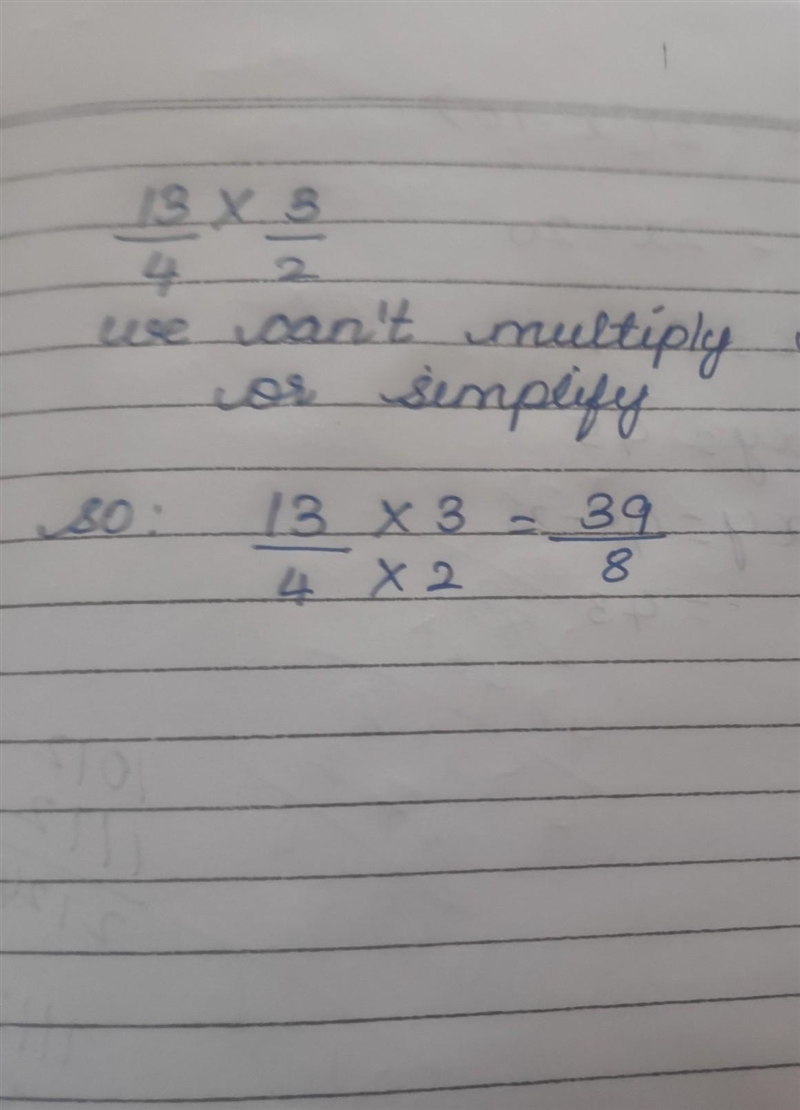 13/4 × 3/2
we can't multiply
or simplify
so: 13 × 3 / 4 × 2 = 39/8